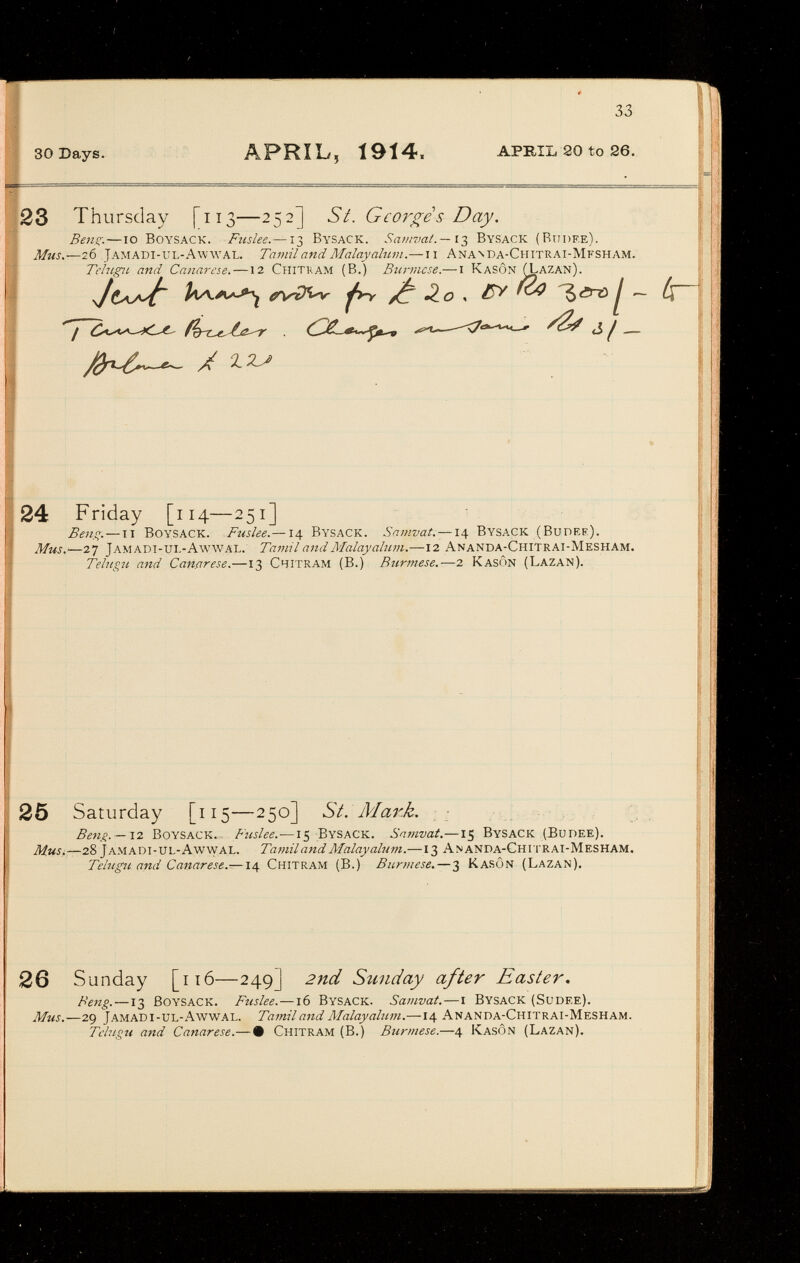 33
30 Days. APRIL, 1914. APRIL 20 to 26.
23 Thursday [113—252] St. George's Day.
Beng.—10 BOYSACK. Fuslee.—13 BYSACK. Samvat.—13 BYSACK (BUDEE).
Mus.—26 JAMADI-UL-AWWAL. Tamil and Malayalum.—11 ANANDA-CHITRAI-MESHAM.
Telugu and Canarese.—12 CHITRAM (B.) Burmese.—1 KASÔN (LAZAN).
Sent money order for £ 20. or Rs 300/- to
T
£ 220
24 Friday [114—251]
Beng.—11 BOYSACK. Fuslee.—14 BYSACK. Samvat.—14 BYSACK (BUDEE).
Mus.—27 JAMADI-UL-AWWAL. Tamil and Malayalum.—12 ANANDA-CHITRAI-MESHAM.
Telugu and Canarese.—13 CHITRAM (B.) Burmese.—2 KASÔN (LAZAN).
25 Saturday [115—250] St. Mark.
Beng.—12 BOYSACK. Fuslee.—15 BYSACK. Samvat.—15 BYSACK (BUDEE).
Mus.—28 JAMADI-UL-AWWAL. Tamil and Malayalum.—13 ANANDA-CHITRAI-MESHAM.
Telugu and Canarese.—14 CHITRAM (B.) Burmese.—3 KASÔN (LAZAN).
26 Sunday [116—249] 2nd Sunday after Easter.
Beng.—13 BOYSACK. Fuslee.—16 BYSACK. Samvat.—1 BYSACK (SUDEE).
Mus.—29 JAMADI-UL-AWWAL. Tamil and Malayalum.—14 ANANDA-CHITRAI-MESHAM.
Telugu and Canarese.—● CHITRAM (B.) Burmese.—4 KASÔN (LAZAN).